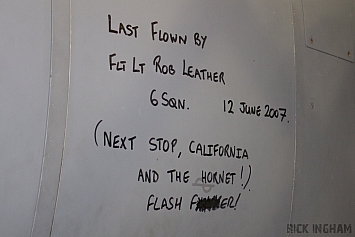 LAST FLOWN BY
FLT LT ROB LEATHER
6 SQN. 12 JUNE 2007.
(NEXT STOP, CALIFORNIA
AND THE HORNET!)
FLASH
RICK INGHAM